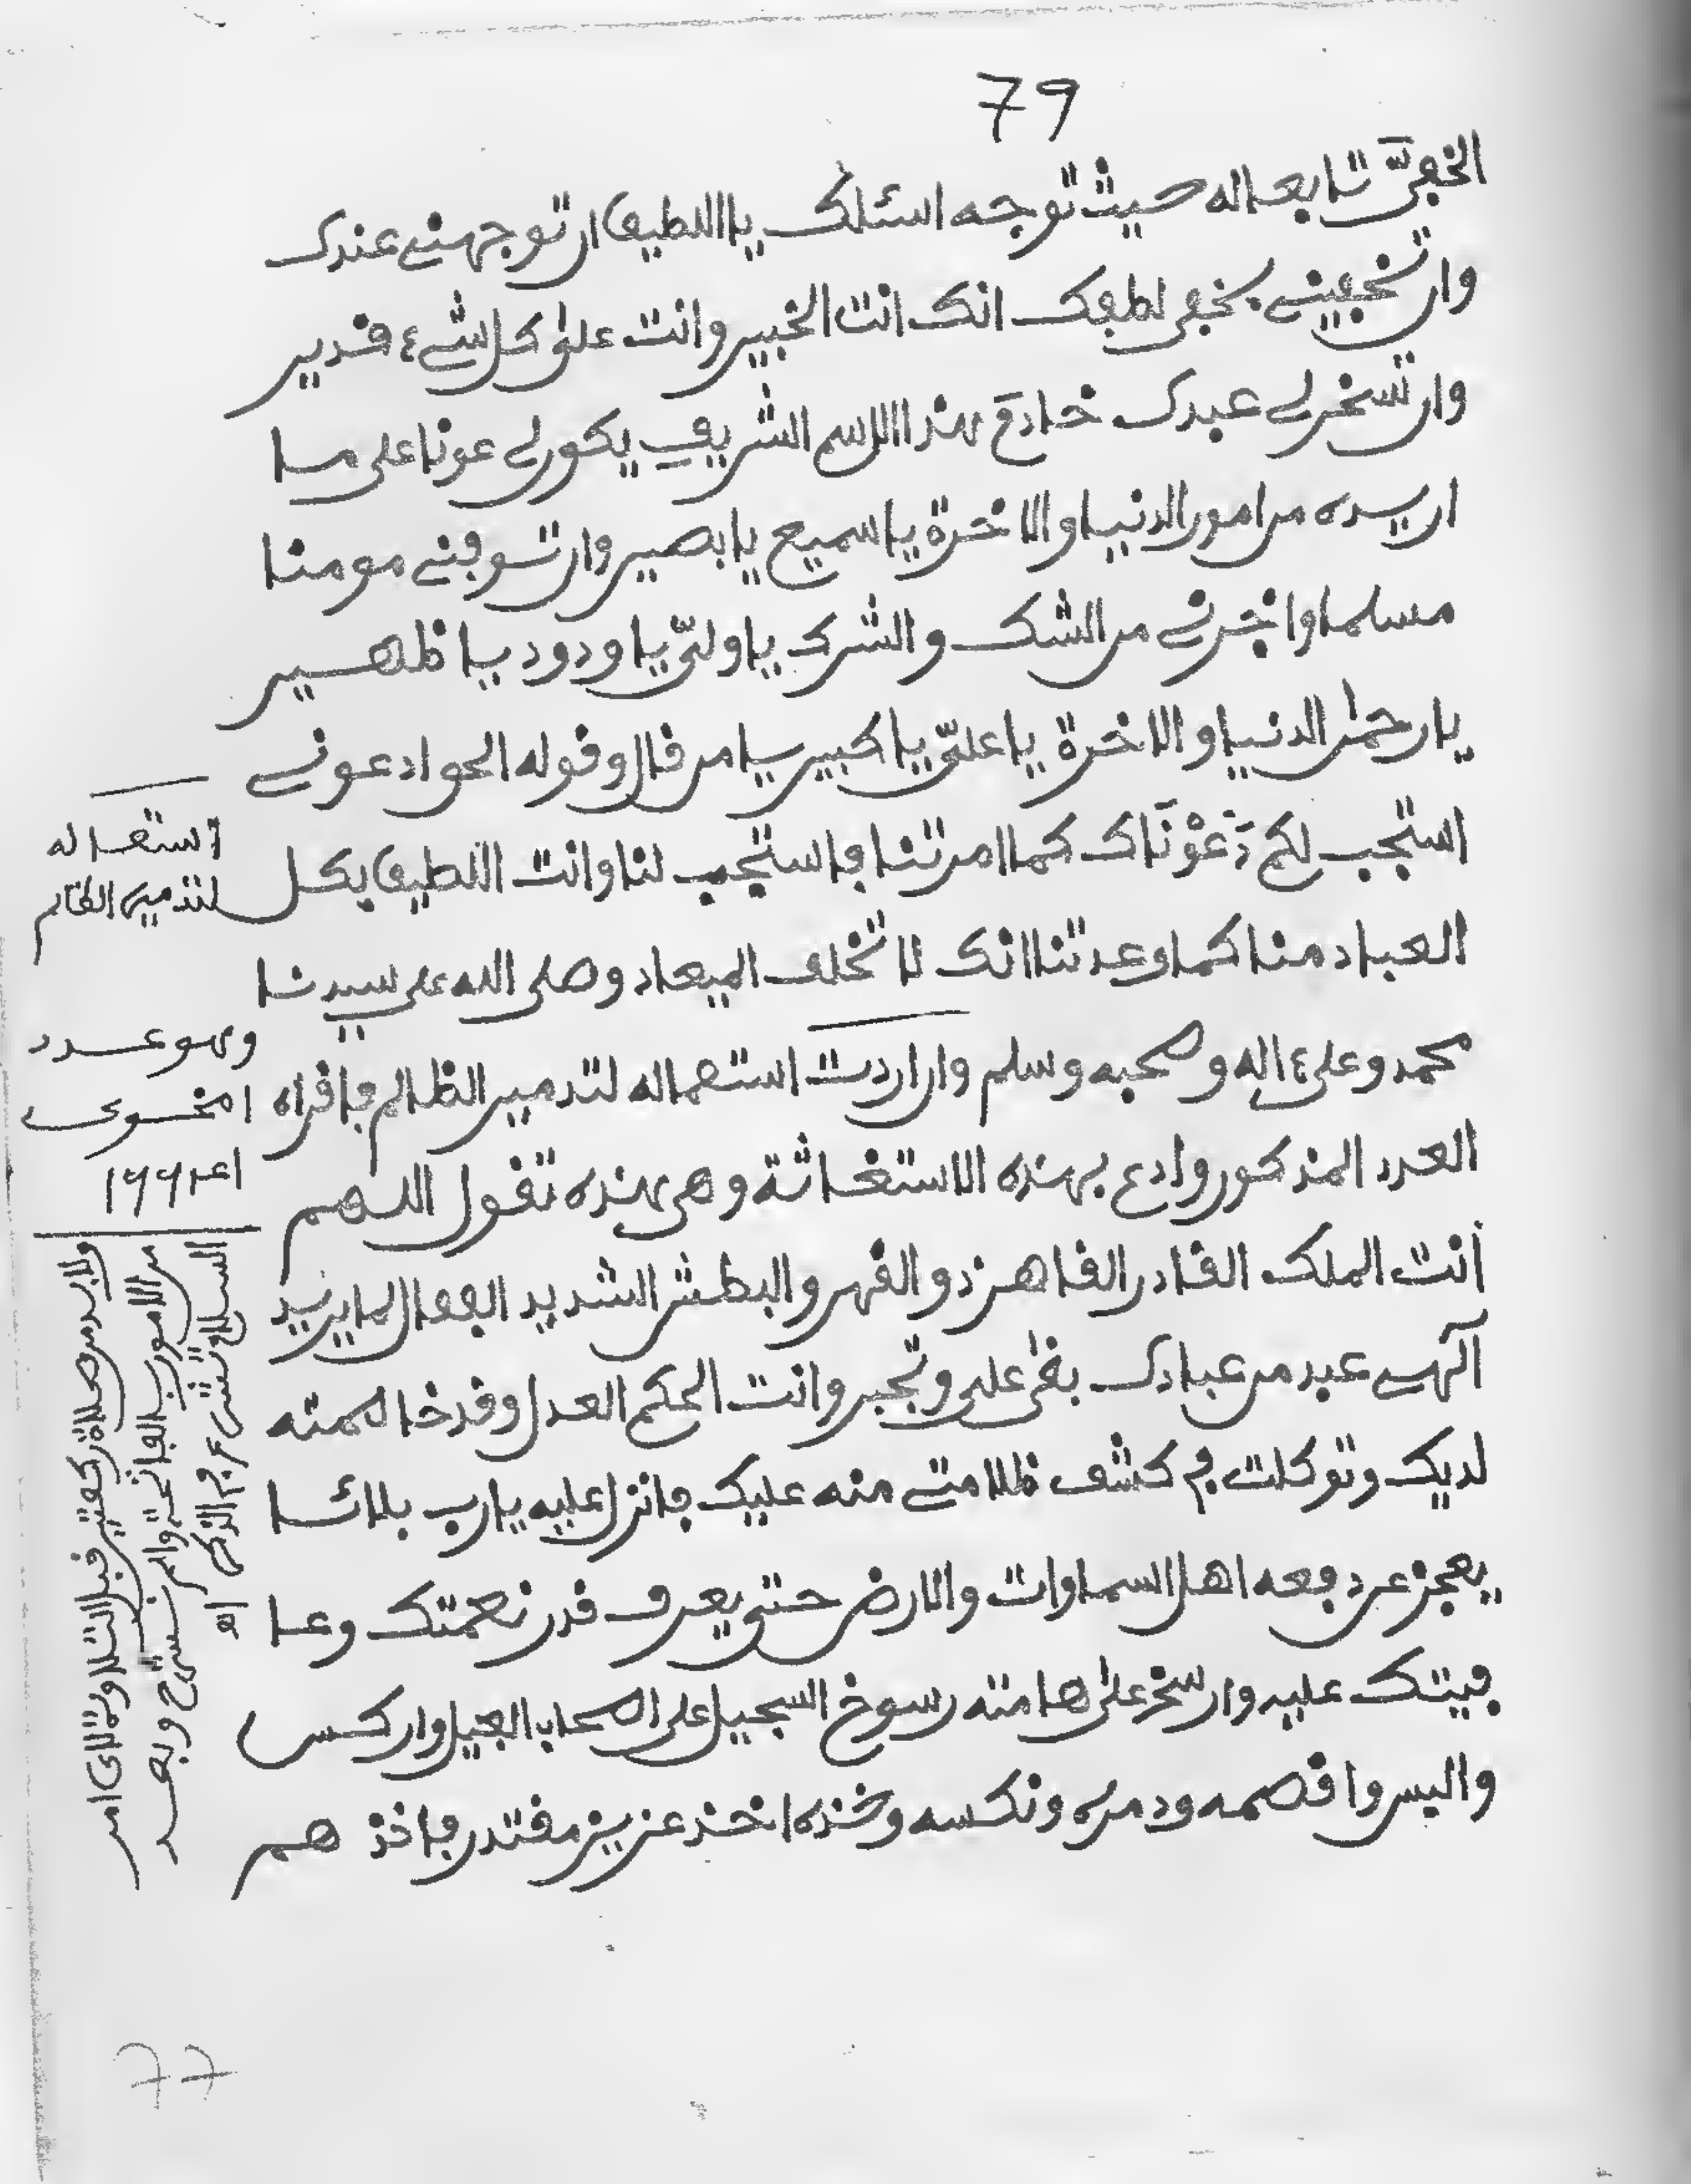 79
الخفيّ تابعا له حيث توجه اسئلك يا اللطيف ان توجهني عندك
وان تخفيني بخفي لطفك انك انت الخبير وانت على كل شيء قدير
وان تسخر لي عبدك خادم هذا الاسم الشريف يكون لي عونا على ما
اريده من امور الدنيا والاخرة يا سميع يا بصير وان تتوفني مومنا
مسلما وا من الشك والشرك يا وليّ يا ودود يا ظهير
يا رحمن الدنيا والاخرة يا عليّ يا كبير يا من قال وقوله الحق ادعوني
استجب لكم دَعَوْنَاك كما امرتنا فاستجب لنا وانت اللطيف بكل
العباد منا كما وعدتنا انك لا تخلف الميعاد وصلى الله على سيدنا
محمد وعلى ءاله وصحبه وسلم وان اردت استعماله لتدمير الظالم فاقراه
العدد المذكور وادع بهذه الاستغاثة وهي هذه تقول اللهم
أنت الملك القادر القاهر ذو القهر والبطش الشديد الفعال لما يريد
آلهي عبد من عبادك بغى علي وتجبر وانت الحكم العدل وقد خاصمته
لديك وتوكلت في كشف ظلامتي منه عليك فانزل عليه يا رب بلائا
يعجز عن دفعه اهل السماوات والارض حتى يعرف قدر نعمتك وعا
فيتك عليه وارسخ على هامته رسوخ السجيل على اصحاب الفيل واركس
والبس واقصمه ودمره ونكسه وخذه اخذ عزيز مقتدر فاخذ هم
استعماله
لتدمير الظالم
وهو عدد
اعد ١٦٦٤١
ولابد من صلاة ركعتين قبل التلاوة لاي امر
من الامور بالفاتحة والم نشرح وبعد
السلام تشرع في الذكر اه
77